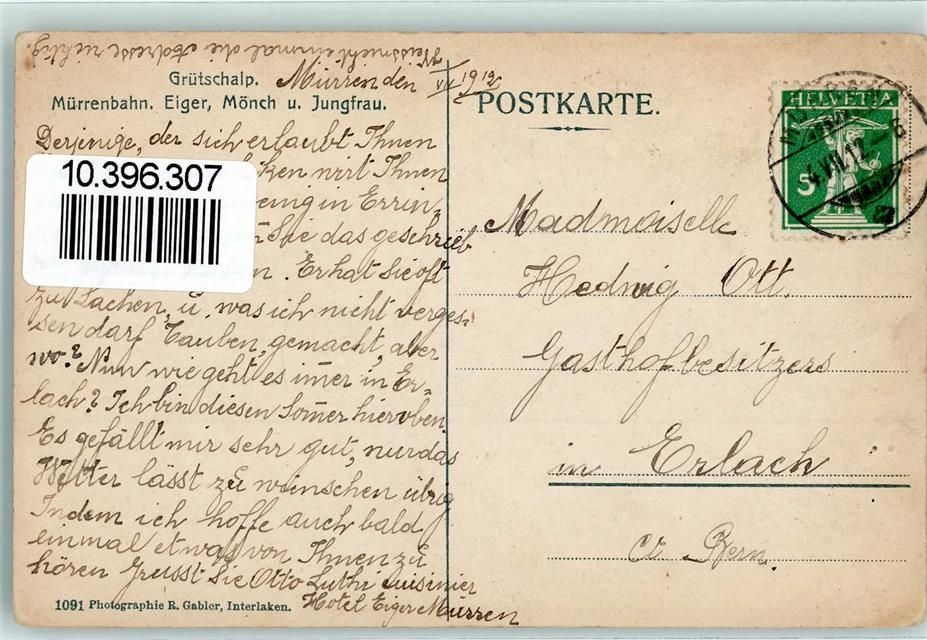 Weiss nicht einmal die Adresse richtig.
Grütschalp.
Mürren den VII 1912
Mürrenbahn. Eiger, Mönch u. Jungfrau.
POSTKARTE.
HELVETIA
5
VIII.12
Derjenige, der sich erlaubt Ihnen
nirt Ihnen
10.396.307
in Errin,
Sie das geschrieb
Er hat Sie oft
zu Lachen, u. was ich nicht verges-
sen darf Tauben, gemacht, aber
wo? Nun wie geht es imer in Er-
lach? Ich bin diesen Somer hieroben
Es gefällt mir sehr gut, nur das
Wetter lässt zu wünschen übrig
Indem ich hoffe auch bald
einmal etwas von Ihnen zu
hören Grusst Sie Otto Luthi Cuisinier
Hotel Eiger Mürren
1091 Photographie R. Gabler, Interlaken.
Madmoiselle
Hedwig Ott.
Gasthofbesitzers
in Erlach
Ct. Bern.